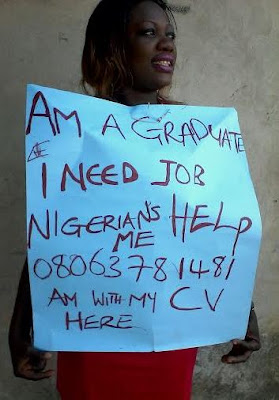 AM A GRADUATE
I NEED JOB
NIGERIAN'S HELP
ME
08063781481
AM WITH MY CV
HERE